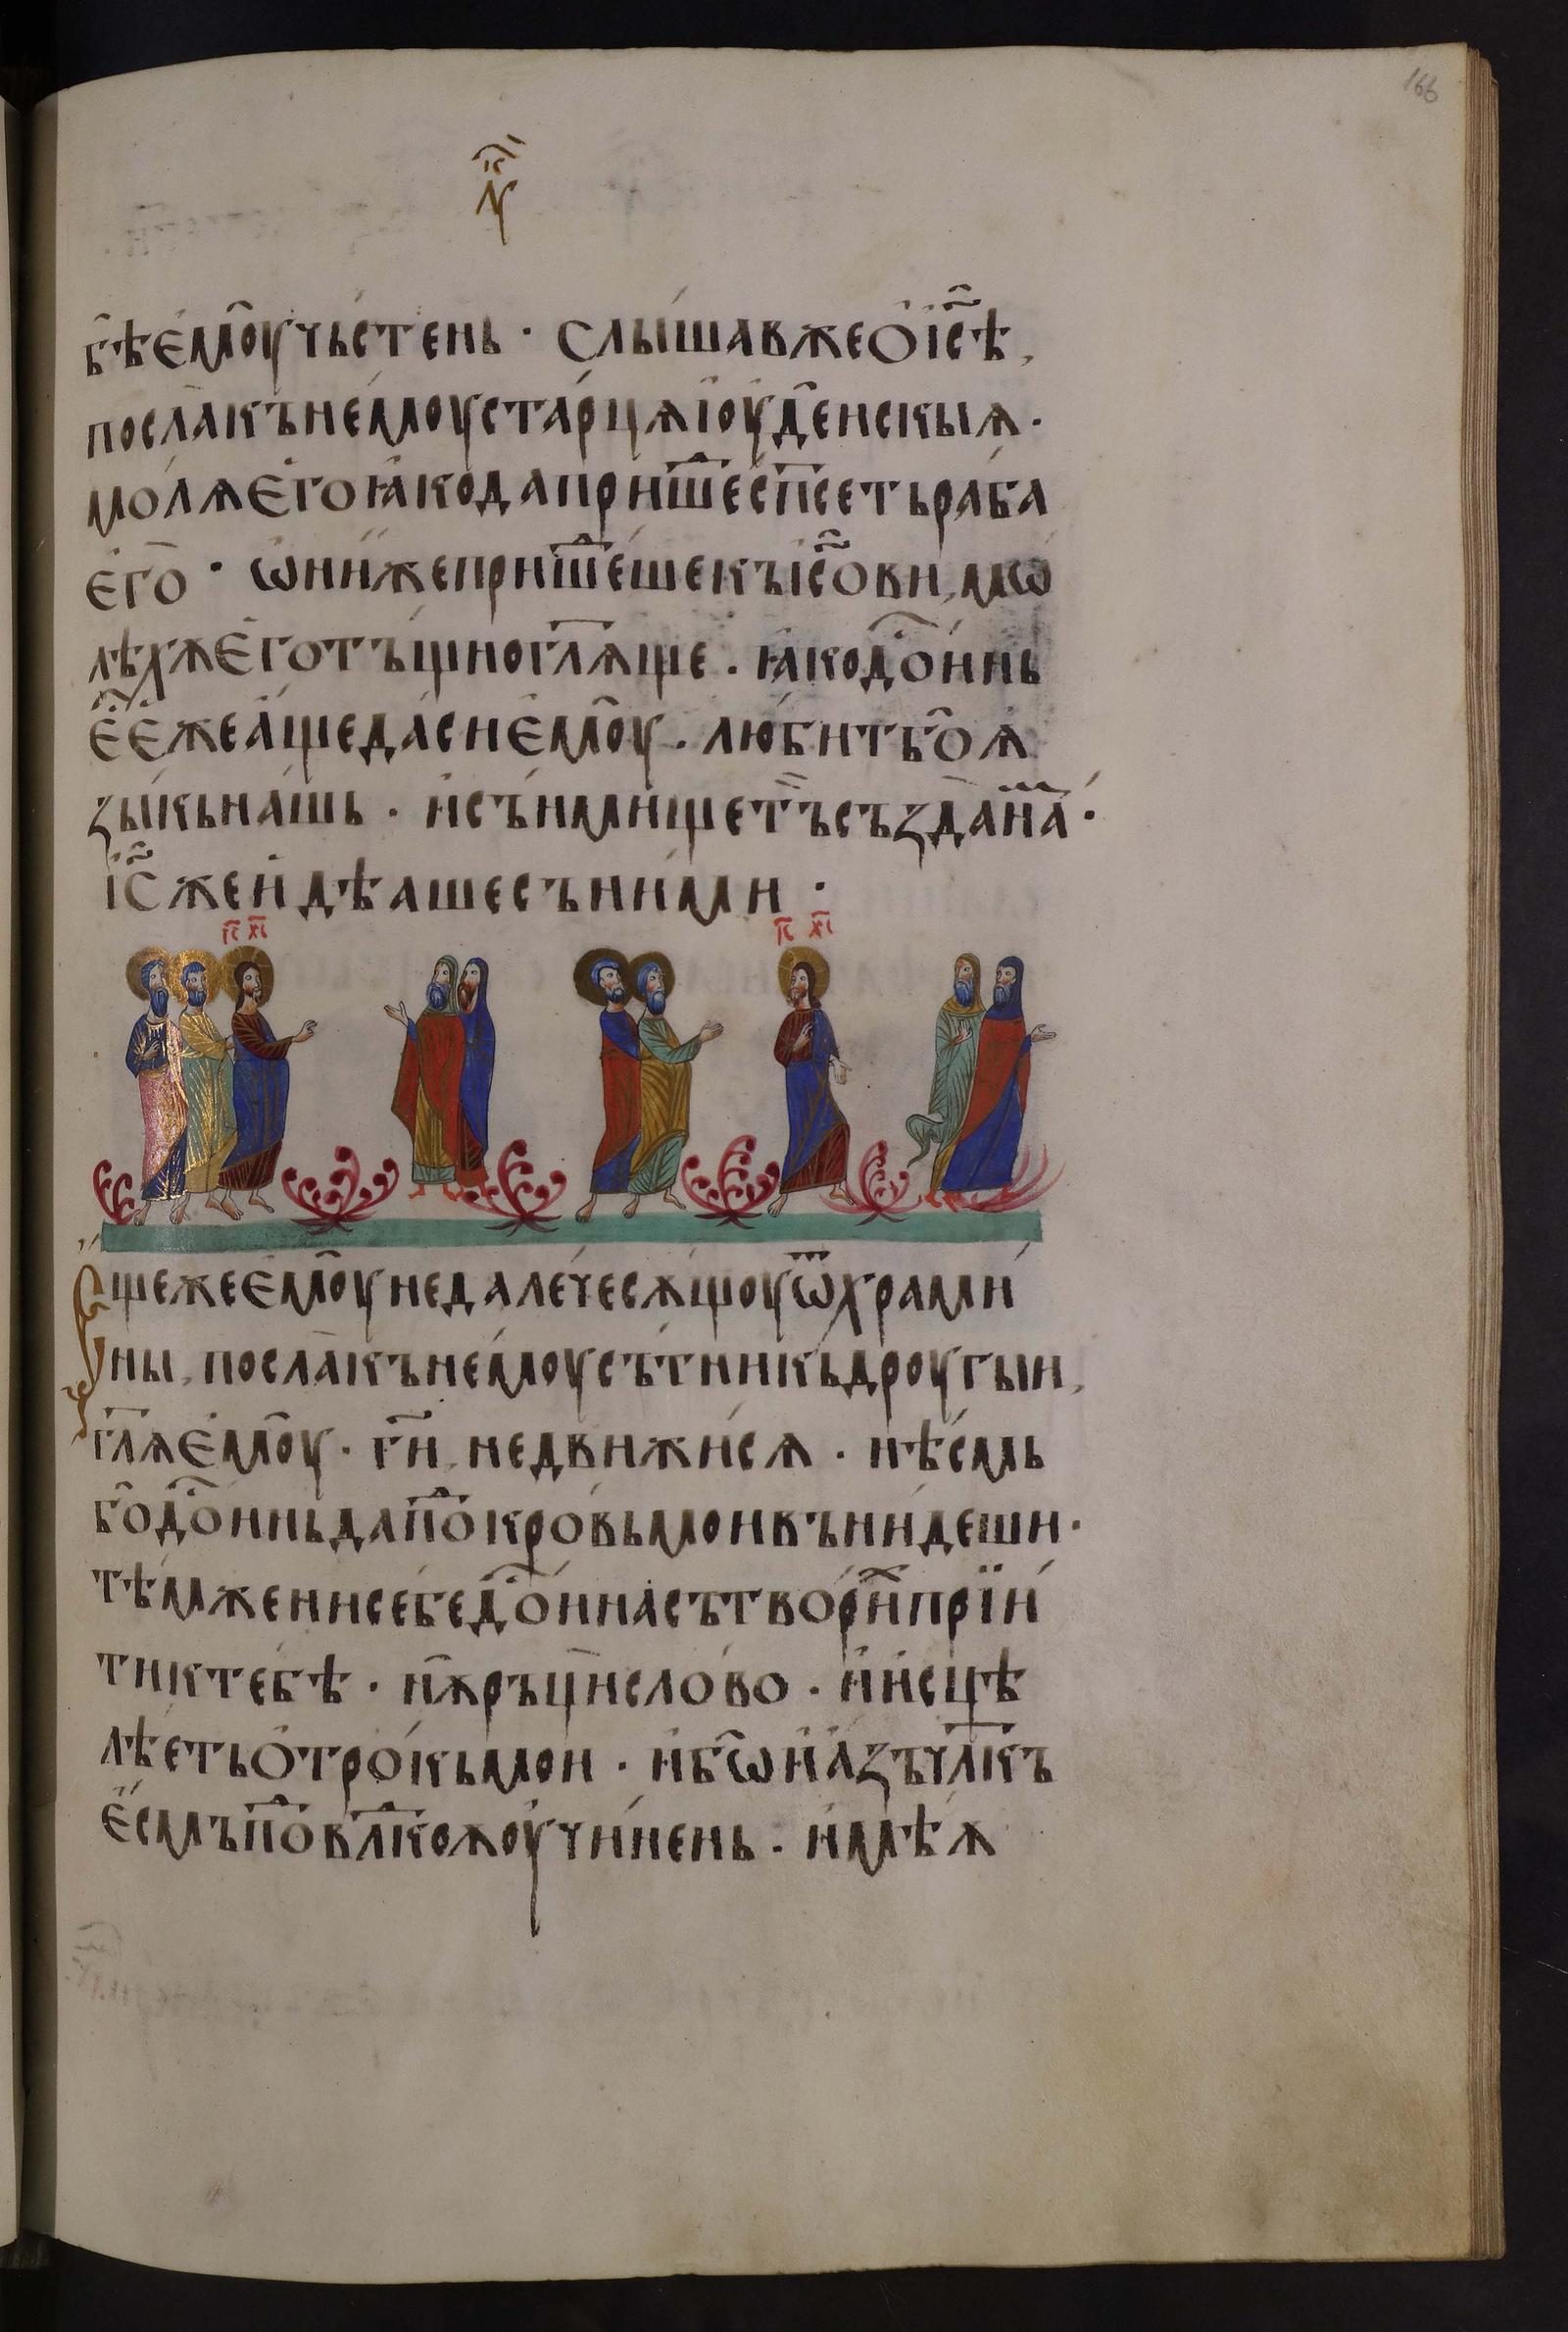 166
бѣ емоу чьстень · слышав же о іс҃ѣ,
посла къ немоу старцѧ іоудеискыѧ ·
молѧ его ꙗко да пришⷣе сп҃сеть раба
его · ѡни же пришеⷣше къ іс҃ови, мѡ
лѣхѫ его тъщно гл҃ѧще · ꙗко дⷭ҇оинь
е҆ е҆же аще даси емоу · любит бо ѧ
зыкь нашь · и сънмище тъ създа на ·
іс҃ же идѣаше съ ними ·
іс҃ хс҃ іс҃ хс҃
Еще же емоу не далече сѫщоу ѿ храми
ны, посла къ немоу сътникь дроугыи,
гл҃ѧ емоу · г҃и, не движи сѧ · нѣсмь
бо дⷭ҇оинь да поⷣ кровь мои вънидеши ·
тѣмже ни себе дⷭ҇оина сътворих прїи
ти к тебѣ · нѫ ръци слово · и исцѣ
лѣеть отрокь мои · ибѡ и азъ чл҃къ
есмъ поⷣ влⷣкоѫ оучинень · имѣѧ